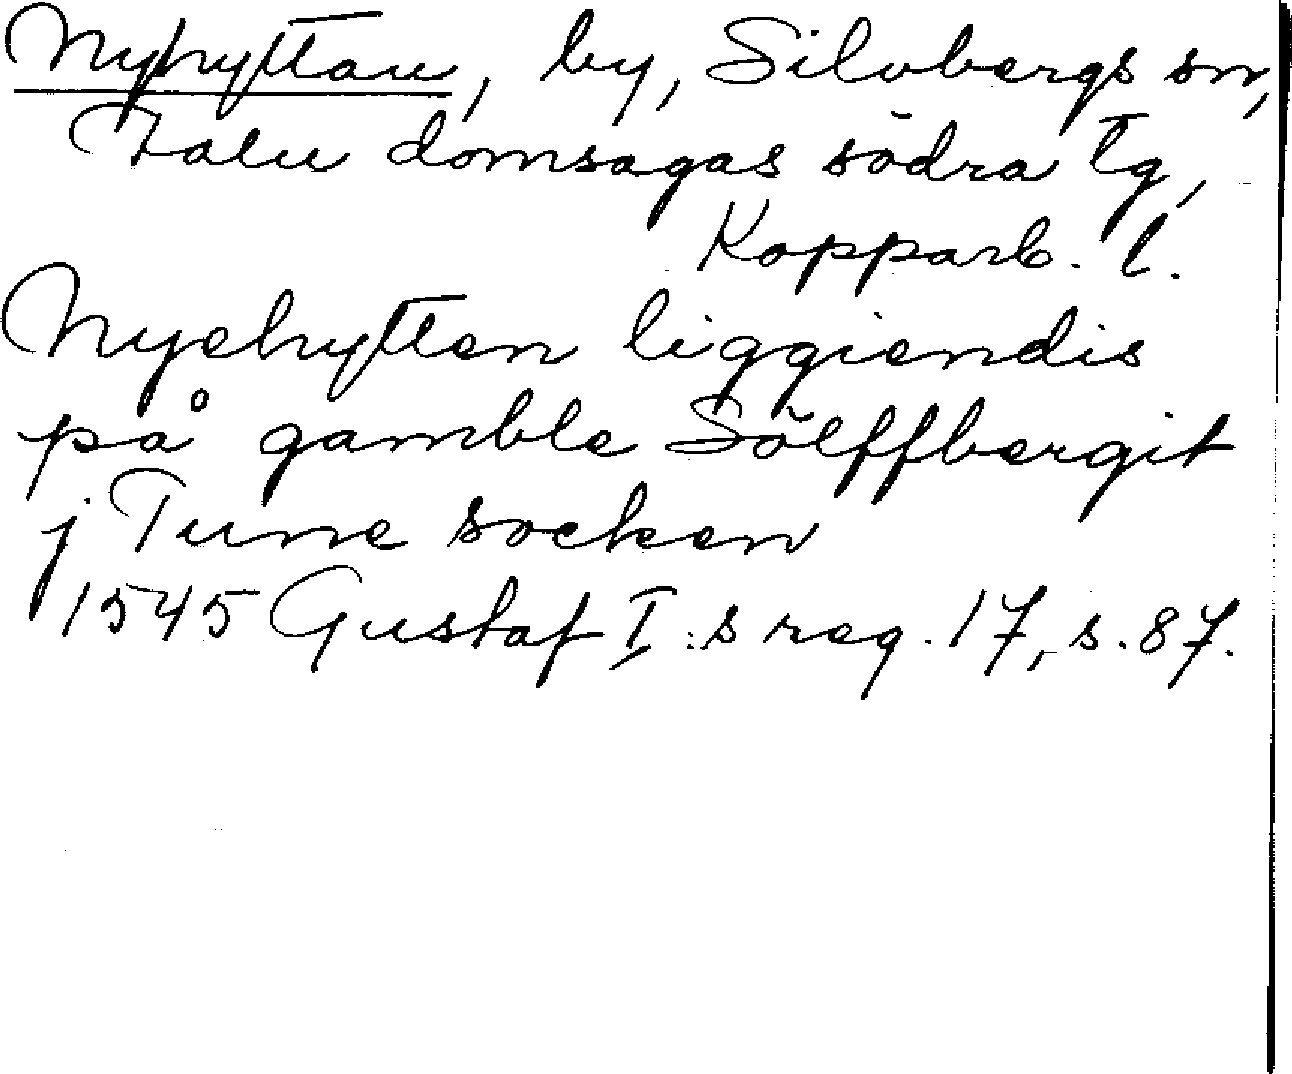 Nyhyttan, by, Silvbergs sn,
Falu domsagas södra tg,
Kopparb. l.
Nyehytten liggiendis
på gamble Sölffbergit
j Tune socken
1545 Gustaf I:s reg. 17, s. 87.